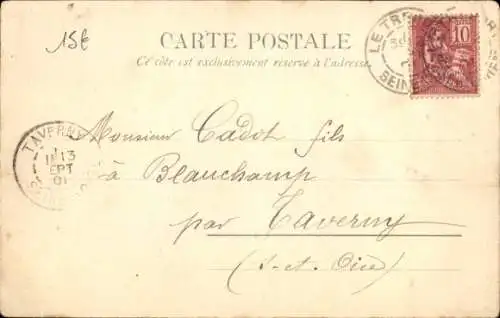 15€
CARTE POSTALE
Ce côté est exclusivement réservé à l'adresse.
LE TR
SEINE
10
TAVERNY
13
SEPT
01
Monsieur Cadot fils
à Beauchamp
par Taverny
(S-et-Oise)